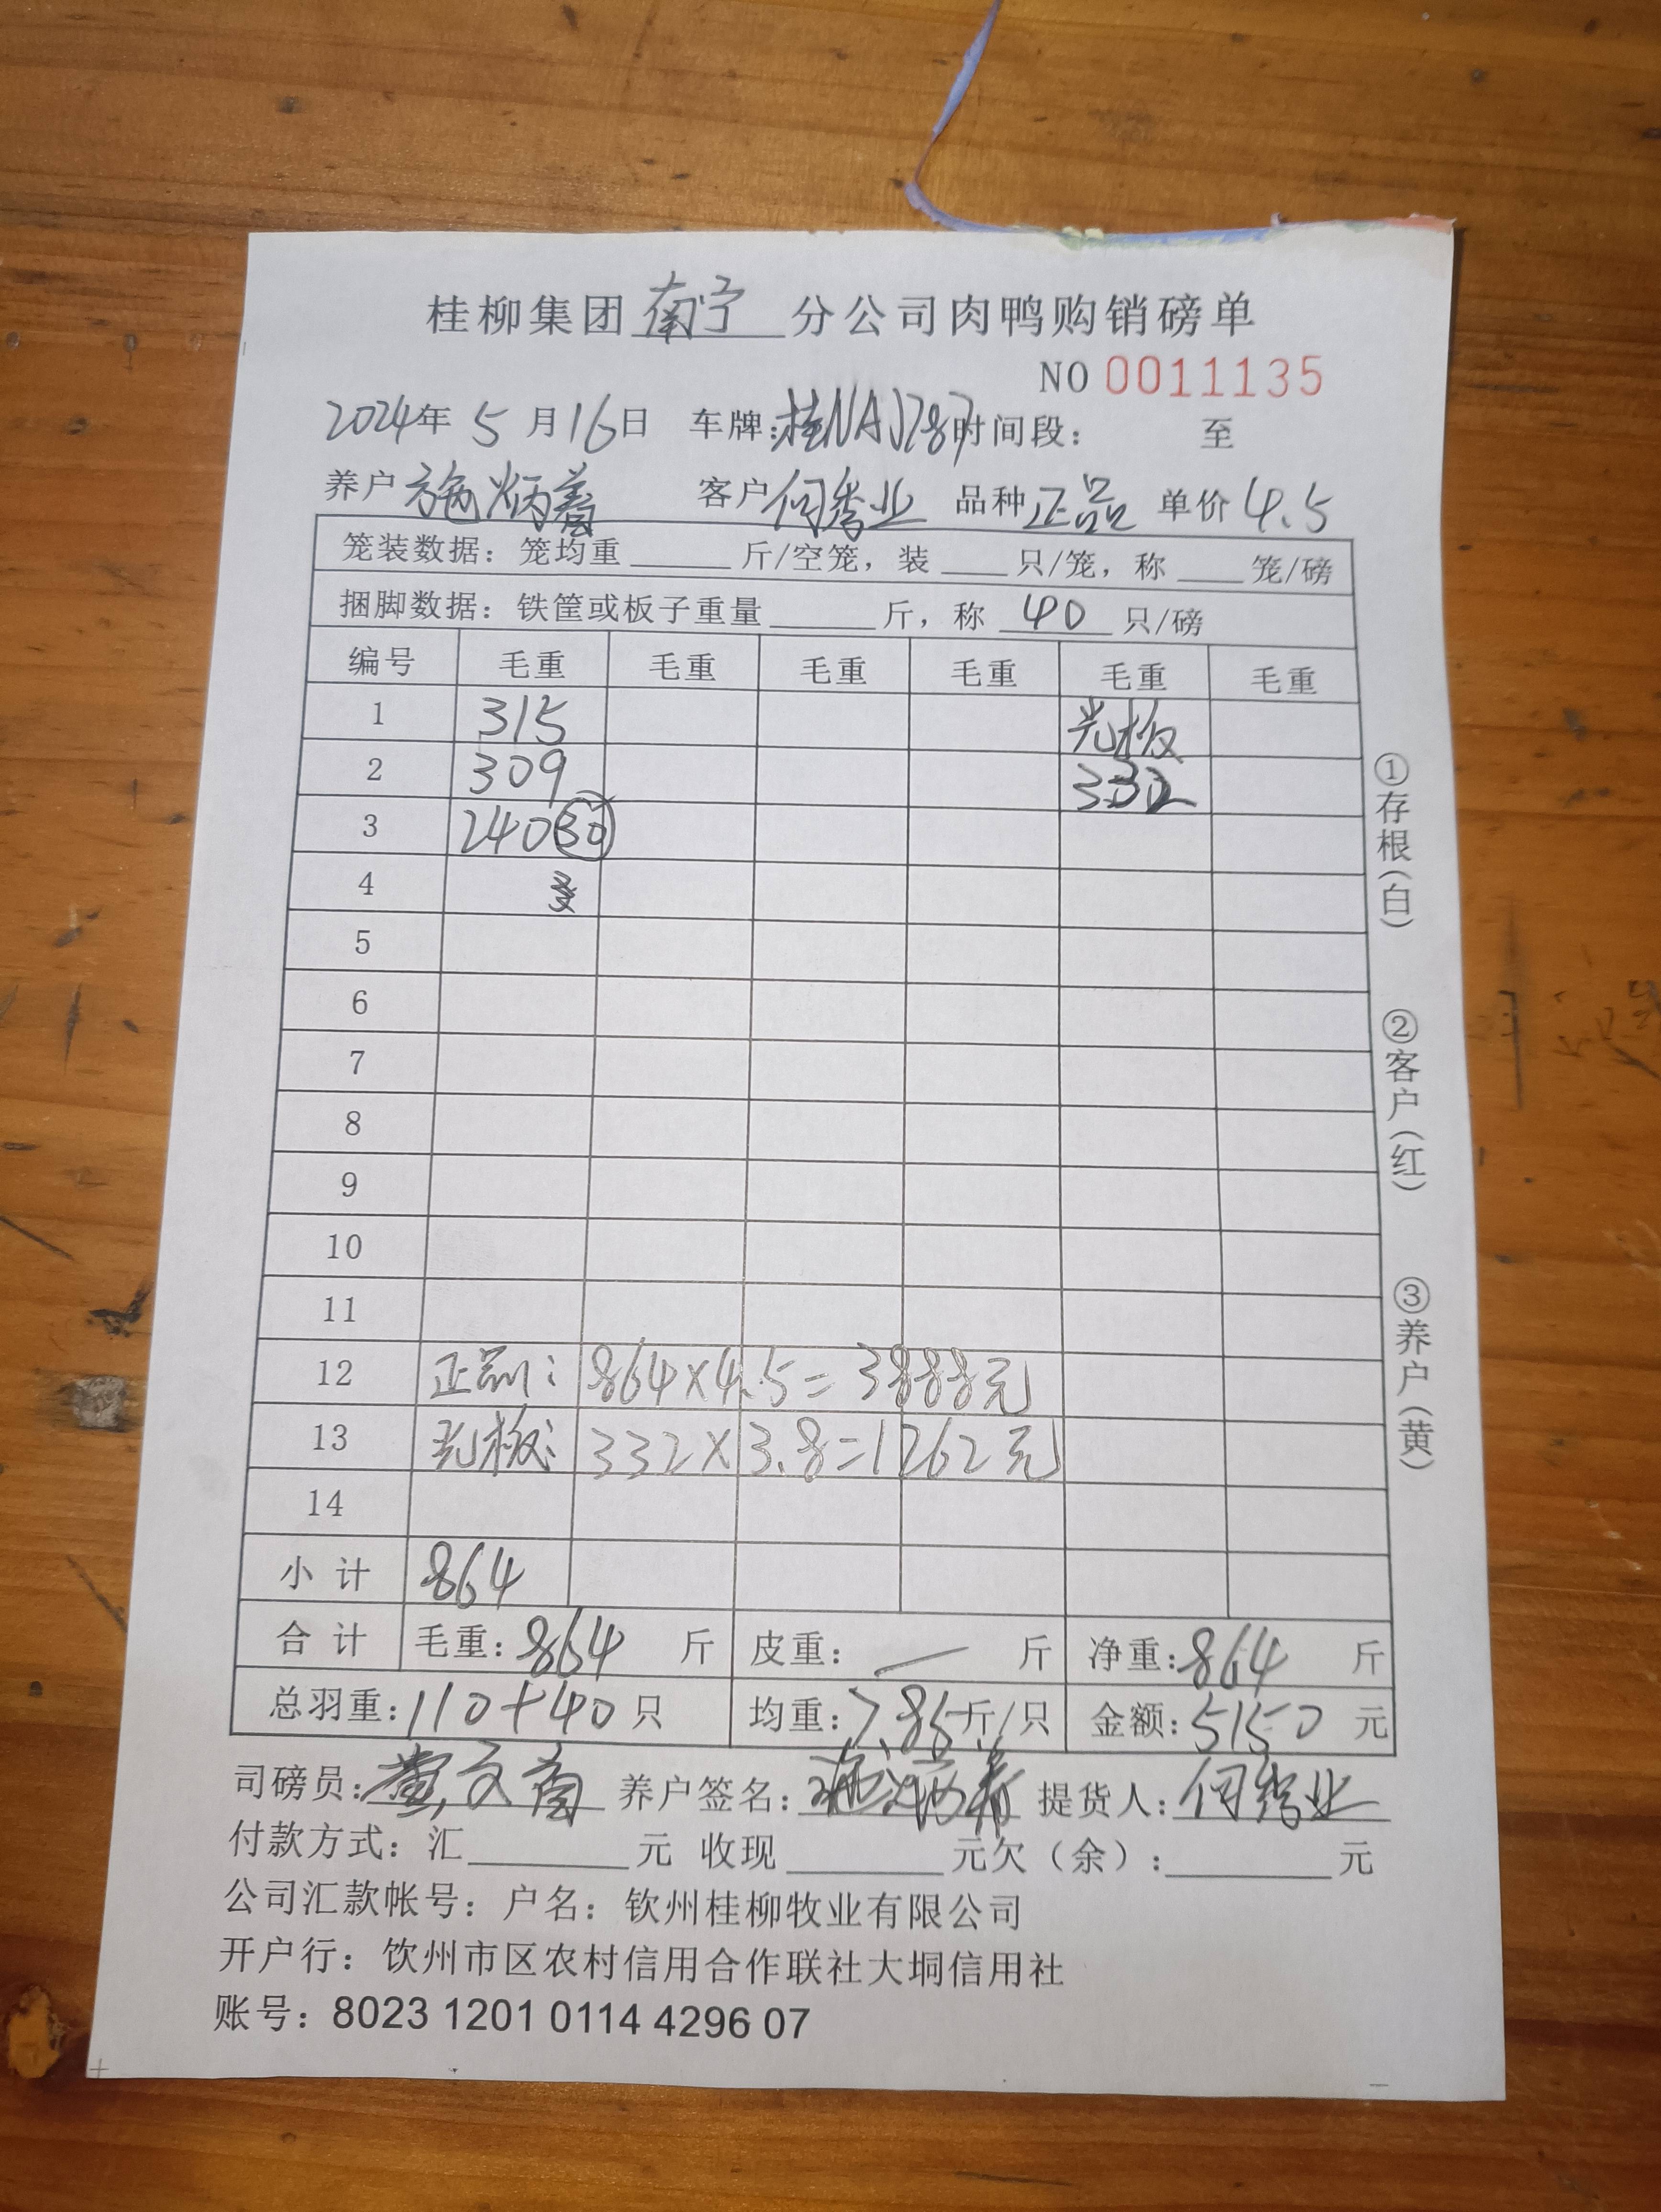 桂柳集团南宁分公司肉鸭购销磅单
NO 0011135
2024年 5 月16日 车牌:桂NAJ787 时间段: 至
养户 施炳 客户 何 业 品种 正品 单价 4.5
笼装数据: 笼均重 斤/空笼, 装 只/笼, 称 笼/磅
捆脚数据: 铁筐或板子重量 斤, 称 40 只/磅
编号 毛重 毛重 毛重 毛重 毛重 毛重
1 315 光板
2 309 332
3 240 30
4
5
6
7
8
9
10
11
12 正品: 864×4.5=3888元
13 光板: 332×3.8=1262元
14
小计 864
合计 毛重: 864 斤 皮重: — 斤 净重: 864 斤
总羽重: 110+40 只 均重: 7.85 斤/只 金额: 5150 元
司磅员: 黄文 养户签名: 施炳 提货人: 何 业
付款方式: 汇 元 收现 元欠(余): 元
公司汇款帐号: 户名: 钦州桂柳牧业有限公司
开户行: 饮州市区农村信用合作联社大垌信用社
账号: 8023 1201 0114 4296 07
①存根(白)
②客户(红)
③养户(黄)